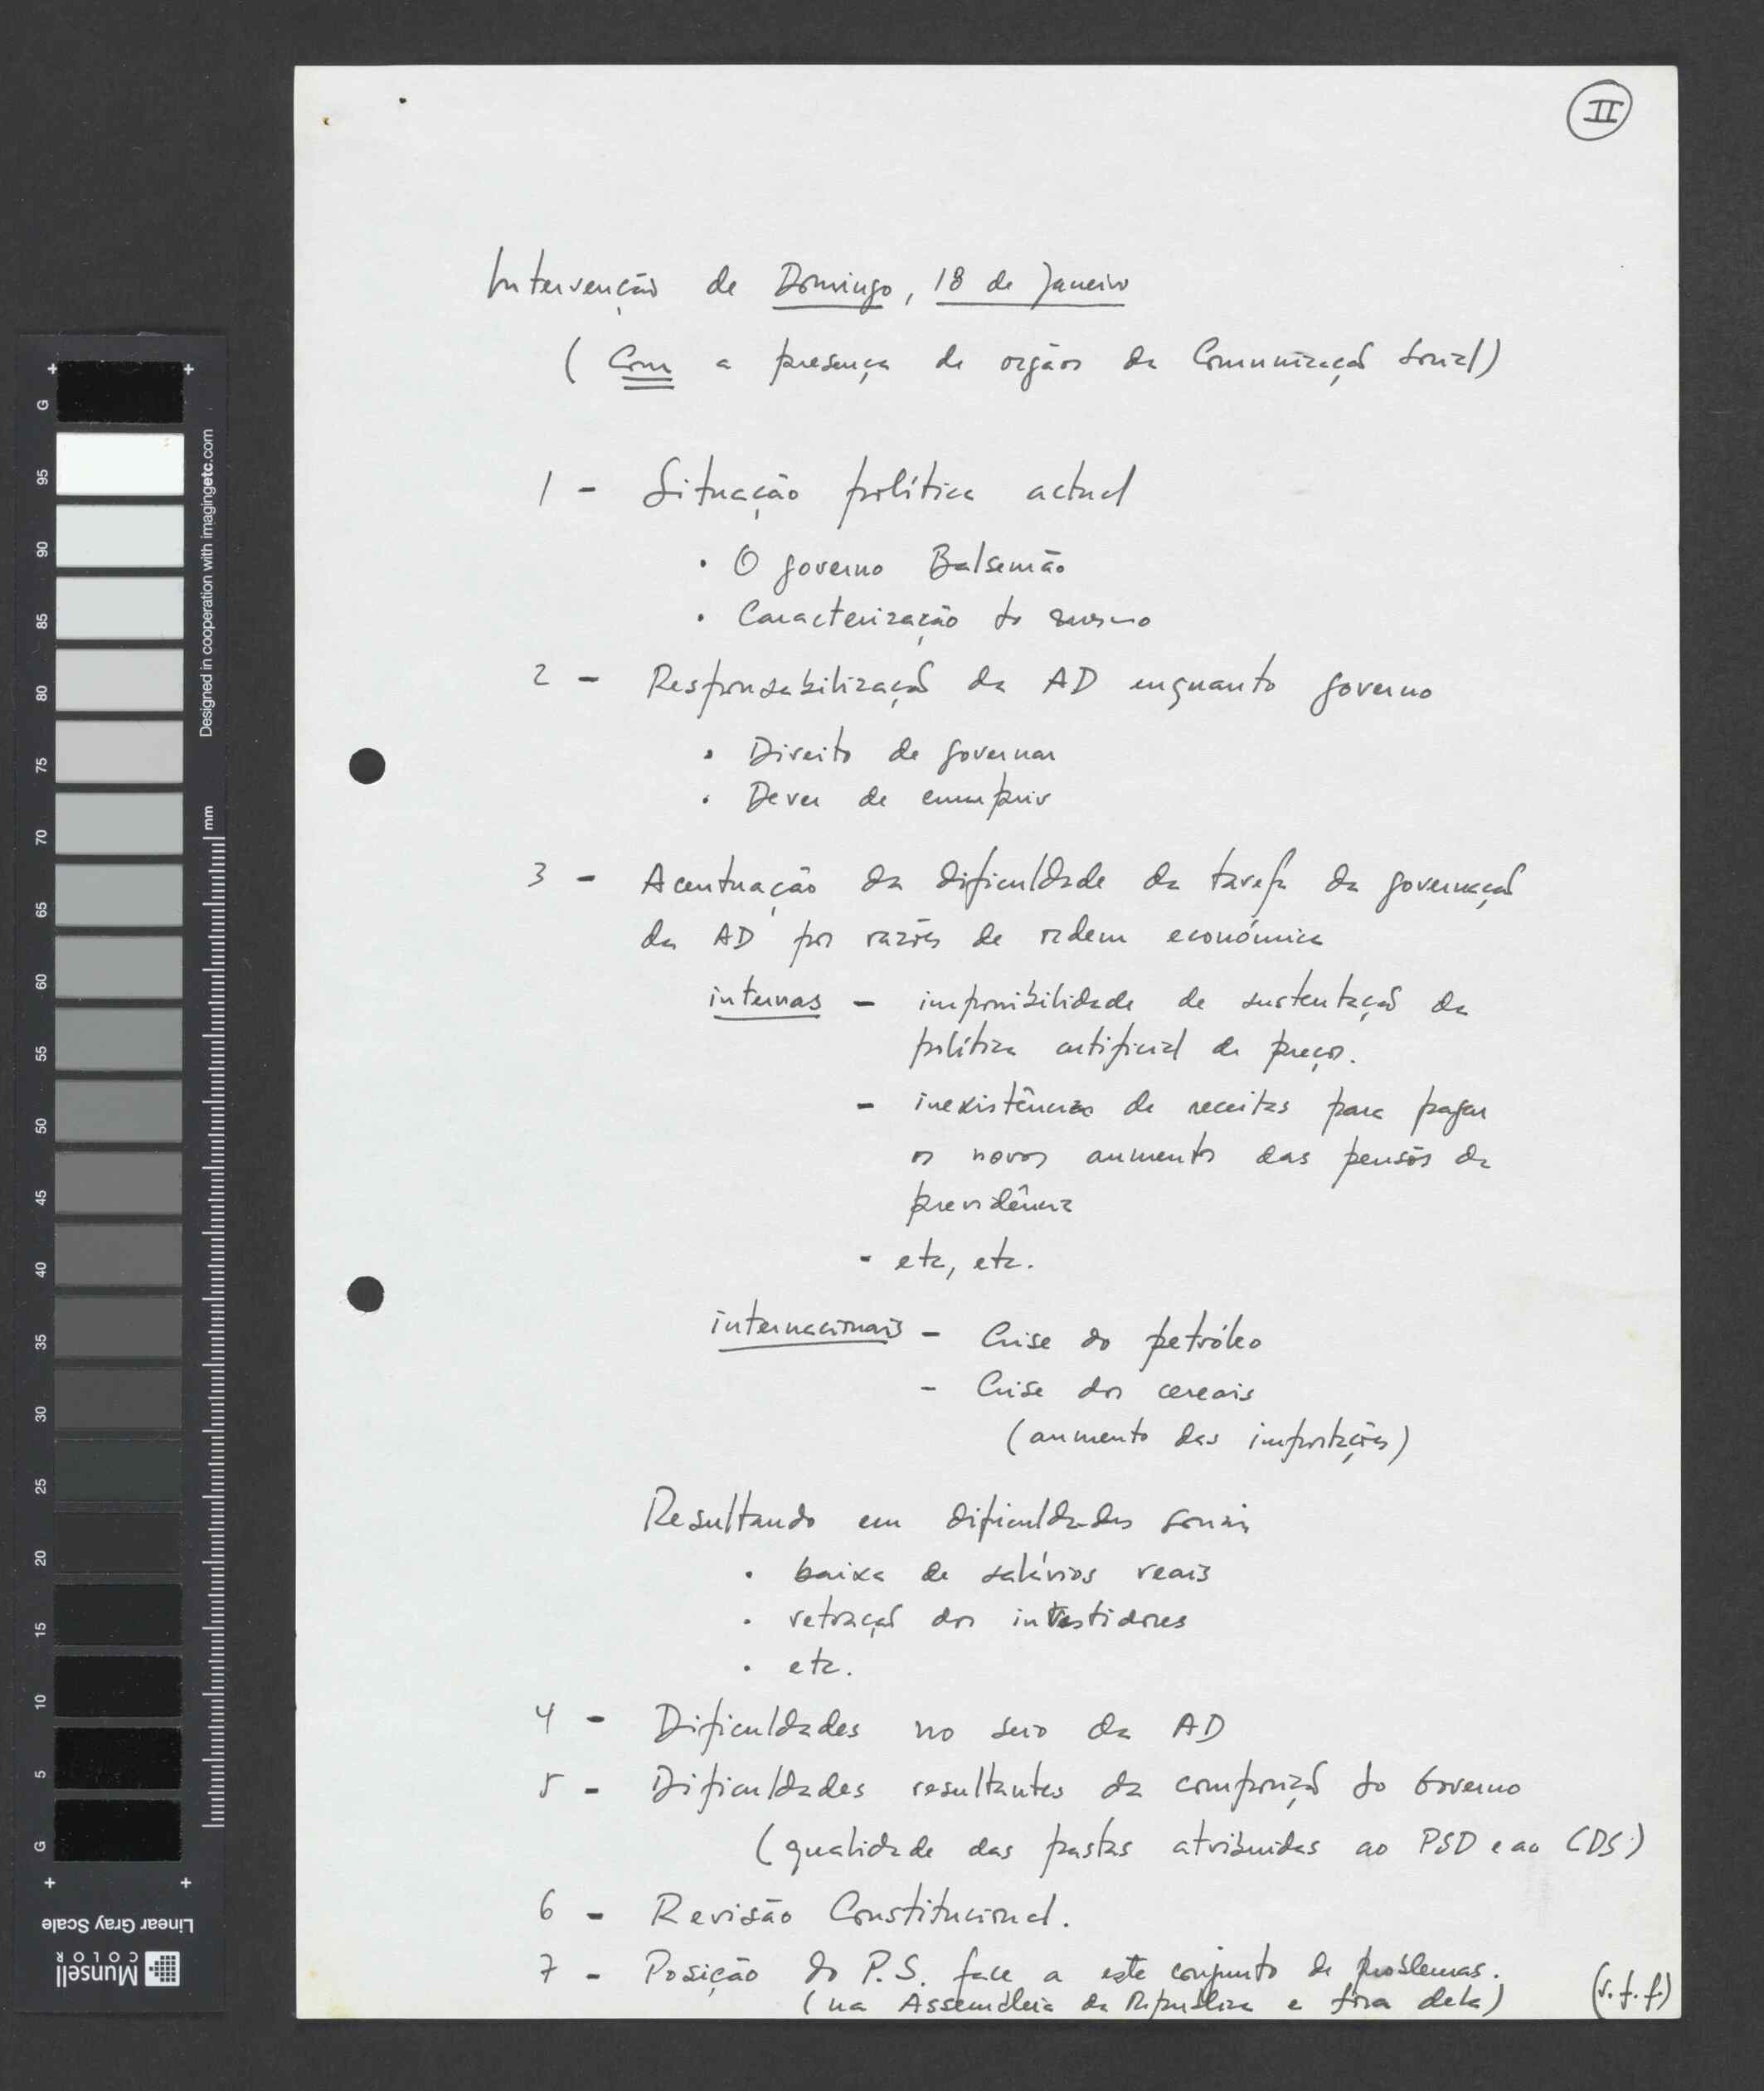 II
Intervenção de Domingo, 18 de Janeiro
( Com a presença de orgãos da Comunicação Social)
1 - Situação política actual
• O governo Balsemão
• Caracterização do mesmo
2 - Responsabilização da AD enquanto governo
• Direito de governar
• Dever de cumprir
3 - Acentuação da dificuldade da tarefa da governação
da AD por razões de ordem económica
internas - impossibilidade de sustentação da
política artificial de preços.
- inexistência de receitas para pagar
os novos aumentos das pensões da
previdência
- etc, etc.
internacionais - Crise do petróleo
- Crise dos cereais
(aumento das importações)
Resultando em dificuldades sociais
• baixa de salários reais
• retração dos investidores
• etc.
4 - Dificuldades no seio da AD
5 - Dificuldades resultantes da composição do Governo
(qualidade das pastas atribuidas ao PSD e ao CDS)
6 - Revisão Constitucional.
7 - Posição do P.S. face a este conjunto de problemas.
(na Assembleia da República e fora dela)
(v.f.f.)
G 95 90 85 80 75 70 65 60 55 50 45 40 35 30 25 20 15 10 5 G
Designed in cooperation with imagingetc.com
mm
Linear Gray Scale
Munsell
COLOR